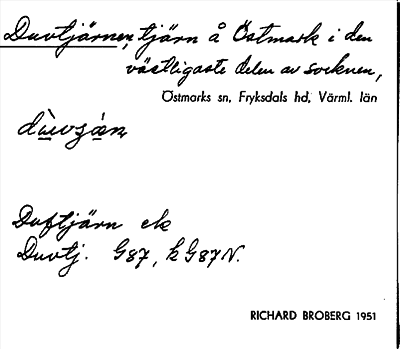 Duvtjärnen, tjärn å Östmark i den
västligaste delen av socknen,
Östmarks sn, Fryksdals hd, Värml. län
Duftjärn ek
Duvtj. G87, k G87N.
RICHARD BROBERG 1951